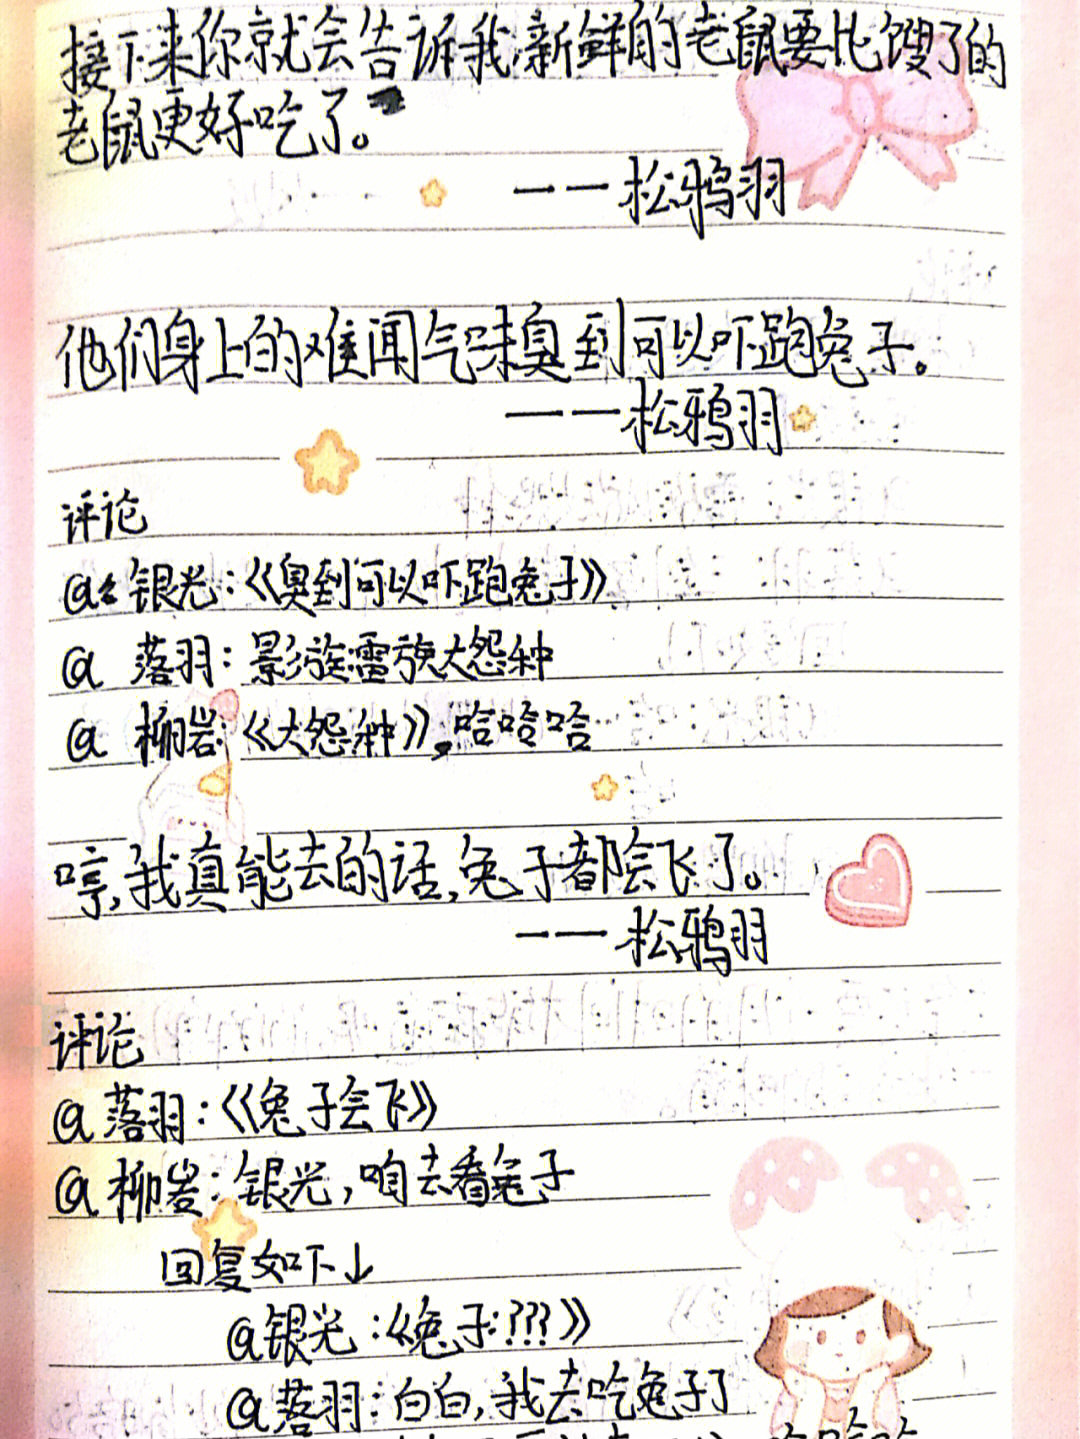 接下来你就会告诉我,新鲜的老鼠要比馊了的
老鼠更好吃了。
——松鸦羽
他们身上的难闻气味臭到可以吓跑兔子。
——松鸦羽
评论
@银光:《臭到可以吓跑兔子》
@ 落羽:影族雷族大怨种
@ 柳岩:《大怨种》,哈哈哈
哼,我真能去的话,兔子都会飞了。
——松鸦羽
评论
@落羽:《兔子会飞》
@柳岩:银光,咱去看兔子
回复如下↓
@银光:《兔子???》
@落羽:白白,我去吃兔子了